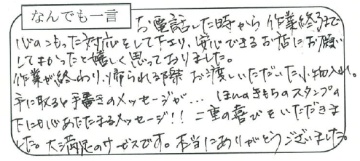 なんでも一言
お電話した時から作業終るまで
心のこもった対応をして下さり、安心できるお店にお願い
してよかったと嬉しく思っておりました。
作業が終わり、帰られる際お渡しいただいた小物入れ。
手に取ると手書きのメッセージが… ほんのきもちのスタンプの
下にも心あたたまるメッセージ!! 二重の喜びをいただきま
した。大満足のサービスです。本当にありがとうございました。